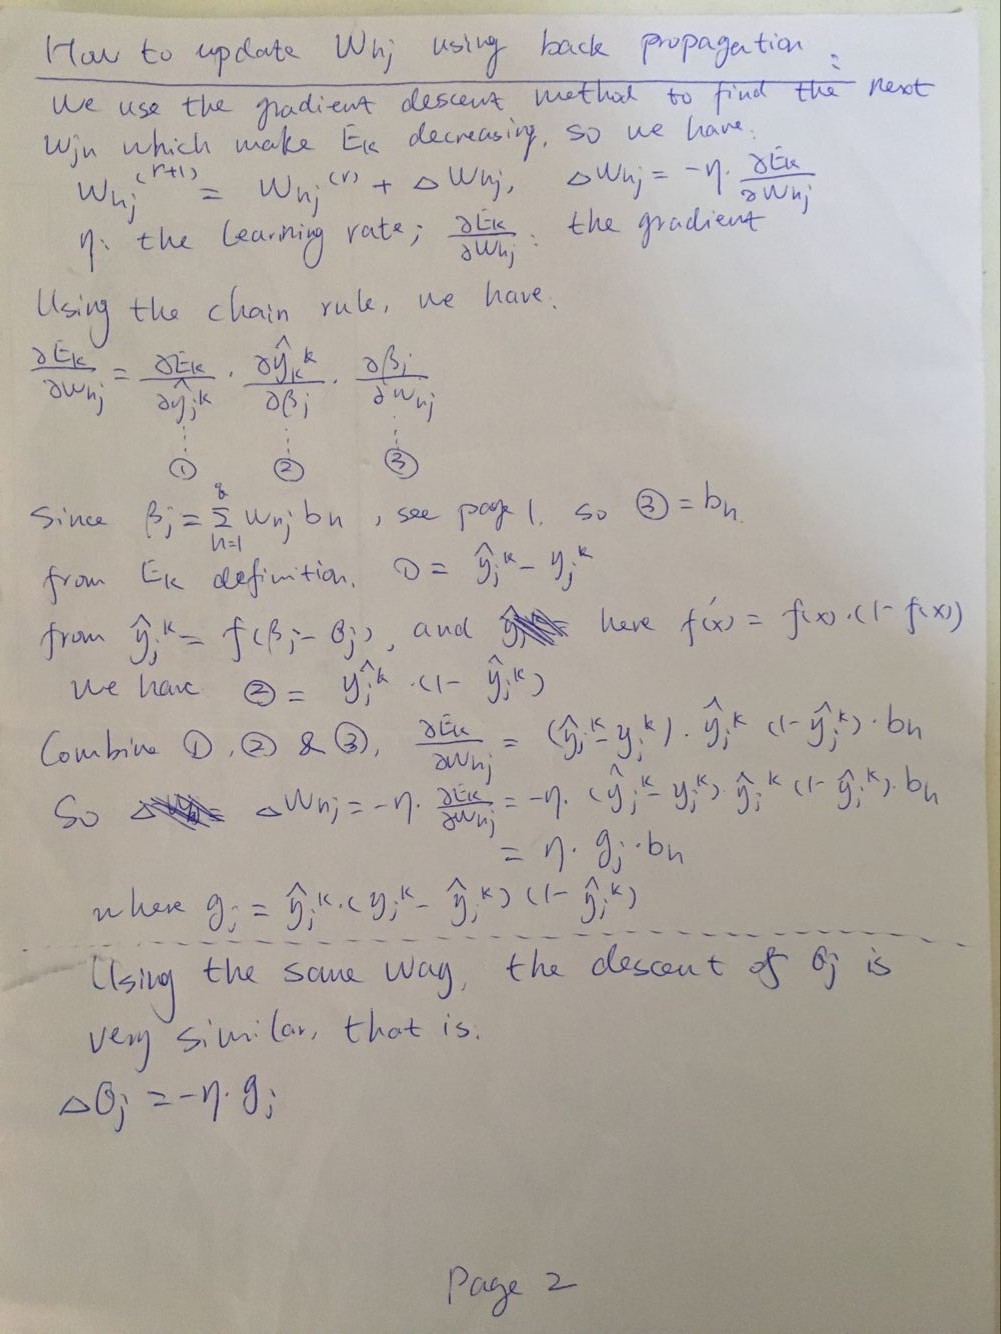 How to update Whj using back propagation :
We use the gradient descent method to find the next
Wjh which make Ek decreasing, so we have:
Whj^(r+1) = Whj^(r) + ΔWhj, ΔWhj = -η· ∂Ek/∂Whj
η: the learning rate; ∂Ek/∂Whj : the gradient
Using the chain rule, we have.
∂Ek/∂whj = ∂Ek/∂ŷj^k · ∂ŷk^k/∂βj · ∂βj/∂whj
① ② ③
Since βj = Σ(h=1 to q) whj bh , see page 1. so ③ = bh
from Ek definition. ① = ŷj^k - yj^k
from ŷj^k = f(βj - θj), and here f'(x) = f(x)·(1-f(x))
we have ② = ŷj^k ·(1- ŷj^k)
Combine ①, ② & ③, ∂Ek/∂Whj = (ŷj^k - yj^k)· ŷj^k (1- ŷj^k)· bh
So ΔWhj = -η· ∂Ek/∂Whj = -η· (ŷj^k - yj^k)· ŷj^k (1- ŷj^k)· bh
= η· gj · bh
where gj = ŷj^k·(yj^k - ŷj^k)(1- ŷj^k)
Using the same way, the descent of θj is
very similar, that is.
Δθj = -η· gj
Page 2